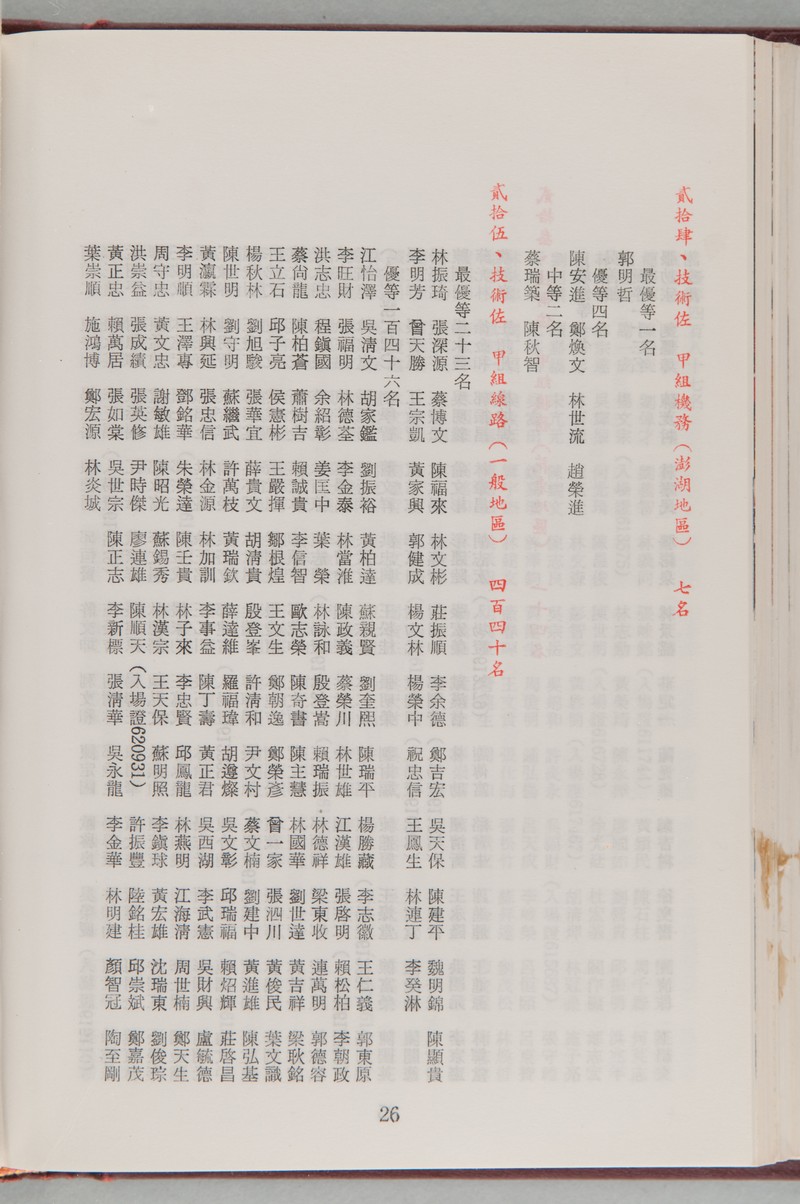 貳拾肆、技術佐 甲組機務（澎湖地區） 七名
最優等一名
郭明哲
優等四名
陳安進 鄭煥文 林世流 趙榮進
中等二名
蔡瑞築 陳秋智
貳拾伍、技術佐 甲組線路（一般地區） 四百四十名
最優等二十三名
林振琦 張深源 蔡博文 陳福來 林文彬 莊振順 李余德 鄭吉宏 吳天保 陳建平 魏明錦 陳顯貴
李明芳 曾天勝 王宗凱 黃家興 郭健成 楊文林 楊榮中 祝忠信 王鳳生 林連丁 李癸淋
優等一百四十六名
江怡澤 吳清文 胡家鑑 劉振裕 黃柏達 蘇親賢 劉奎熙 陳瑞平 楊勝藏 李志徽 王仁義 郭東原
李旺財 張福明 林德荃 李金泰 林當淮 陳政義 蔡榮川 林世雄 江漢雄 張啓明 賴松柏 李朝政
洪志忠 程鎭國 余紹彰 姜匡中 葉榮 林詠和 殷登嵩 賴瑞振 林德祥 梁東收 連萬明 郭德容
蔡尙龍 陳柏蒼 蕭樹吉 賴誠貴 李信智 歐志榮 陳奇書 陳主慧 林國華 劉世達 黃吉祥 梁耿銘
王立石 邱子亮 侯憲彬 王嚴揮 鄒根煌 王文生 鄭朝逸 鄭榮彥 曾一家 張泗川 黃俊民 葉文識
楊秋林 劉旭駿 張華宜 薛貴文 胡淸貴 殷登峯 許淸和 尹文村 蔡文楠 劉建中 黃進雄 陳弘基
陳世明 劉守明 蘇繼武 許萬枝 黃瑞欽 薛達維 羅福瑋 胡遵燦 吳文彰 邱瑞福 賴炤輝 莊啓昌
黃瀛霖 林興延 張忠信 林金源 林加訓 李事益 陳丁壽 黃正君 吳西湖 李武憲 吳財興 盧毓德
李明順 王澤專 鄧銘華 朱榮達 陳壬貴 林子來 李忠賢 邱鳳龍 林燕明 江海淸 周世楠 鄭天生
周守忠 黃文忠 謝敏雄 陳昭光 蘇錫秀 林漢宗 王天保 蘇明照 李鎭球 黃宏雄 沈瑞東 劉俊琮
洪崇益 張成績 張英修 尹時傑 廖連雄 陳順天（入場證620931） 許振豐 陸銘桂 邱崇斌 鄭嘉茂
黃正忠 賴萬居 張如棠 吳世宗 陳正志 李新標 張淸華 吳永龍 李金華 林明建 顏智冠 陶至剛
葉崇順 施鴻博 鄭宏源 林炎城
26